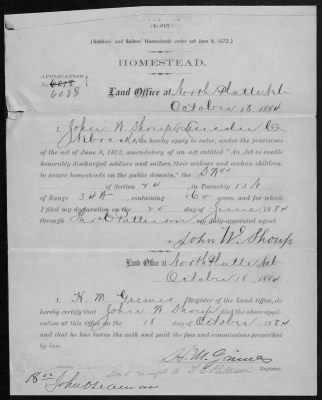 (Soldiers' and Sailors' Homesteads under act June 8, 1872.)
HOMESTEAD.
APPLICATION
No.
6088
Land Office at North Platte Neb
October 18, 1884
I, John W Shoup of Lincoln Co
Nebraska, do hereby apply to enter, under the provisions
of the act of June 8, 1872, amendatory of an act entitled "An Act to enable
honorably discharged soldiers and sailors, their widows and orphan children,
to secure homesteads on the public domain," the
of Section in Township
of Range 34 W, containing 160 acres, and for which
I filed my declaration on the day of June, 1884
through Patterson, my duly-appointed agent.
John W. Shoup
Land Office at North Platte Neb
October 18, 1884
I, H. M. Grimes, Register of the Land Office, do
hereby certify that John W Shoup filed the above appli-
cation at this Office on the 18 day of October 1884
and that he has taken the oath and paid the fees and commissions prescribed
by law.
H. M. Grimes
Register.
18
John